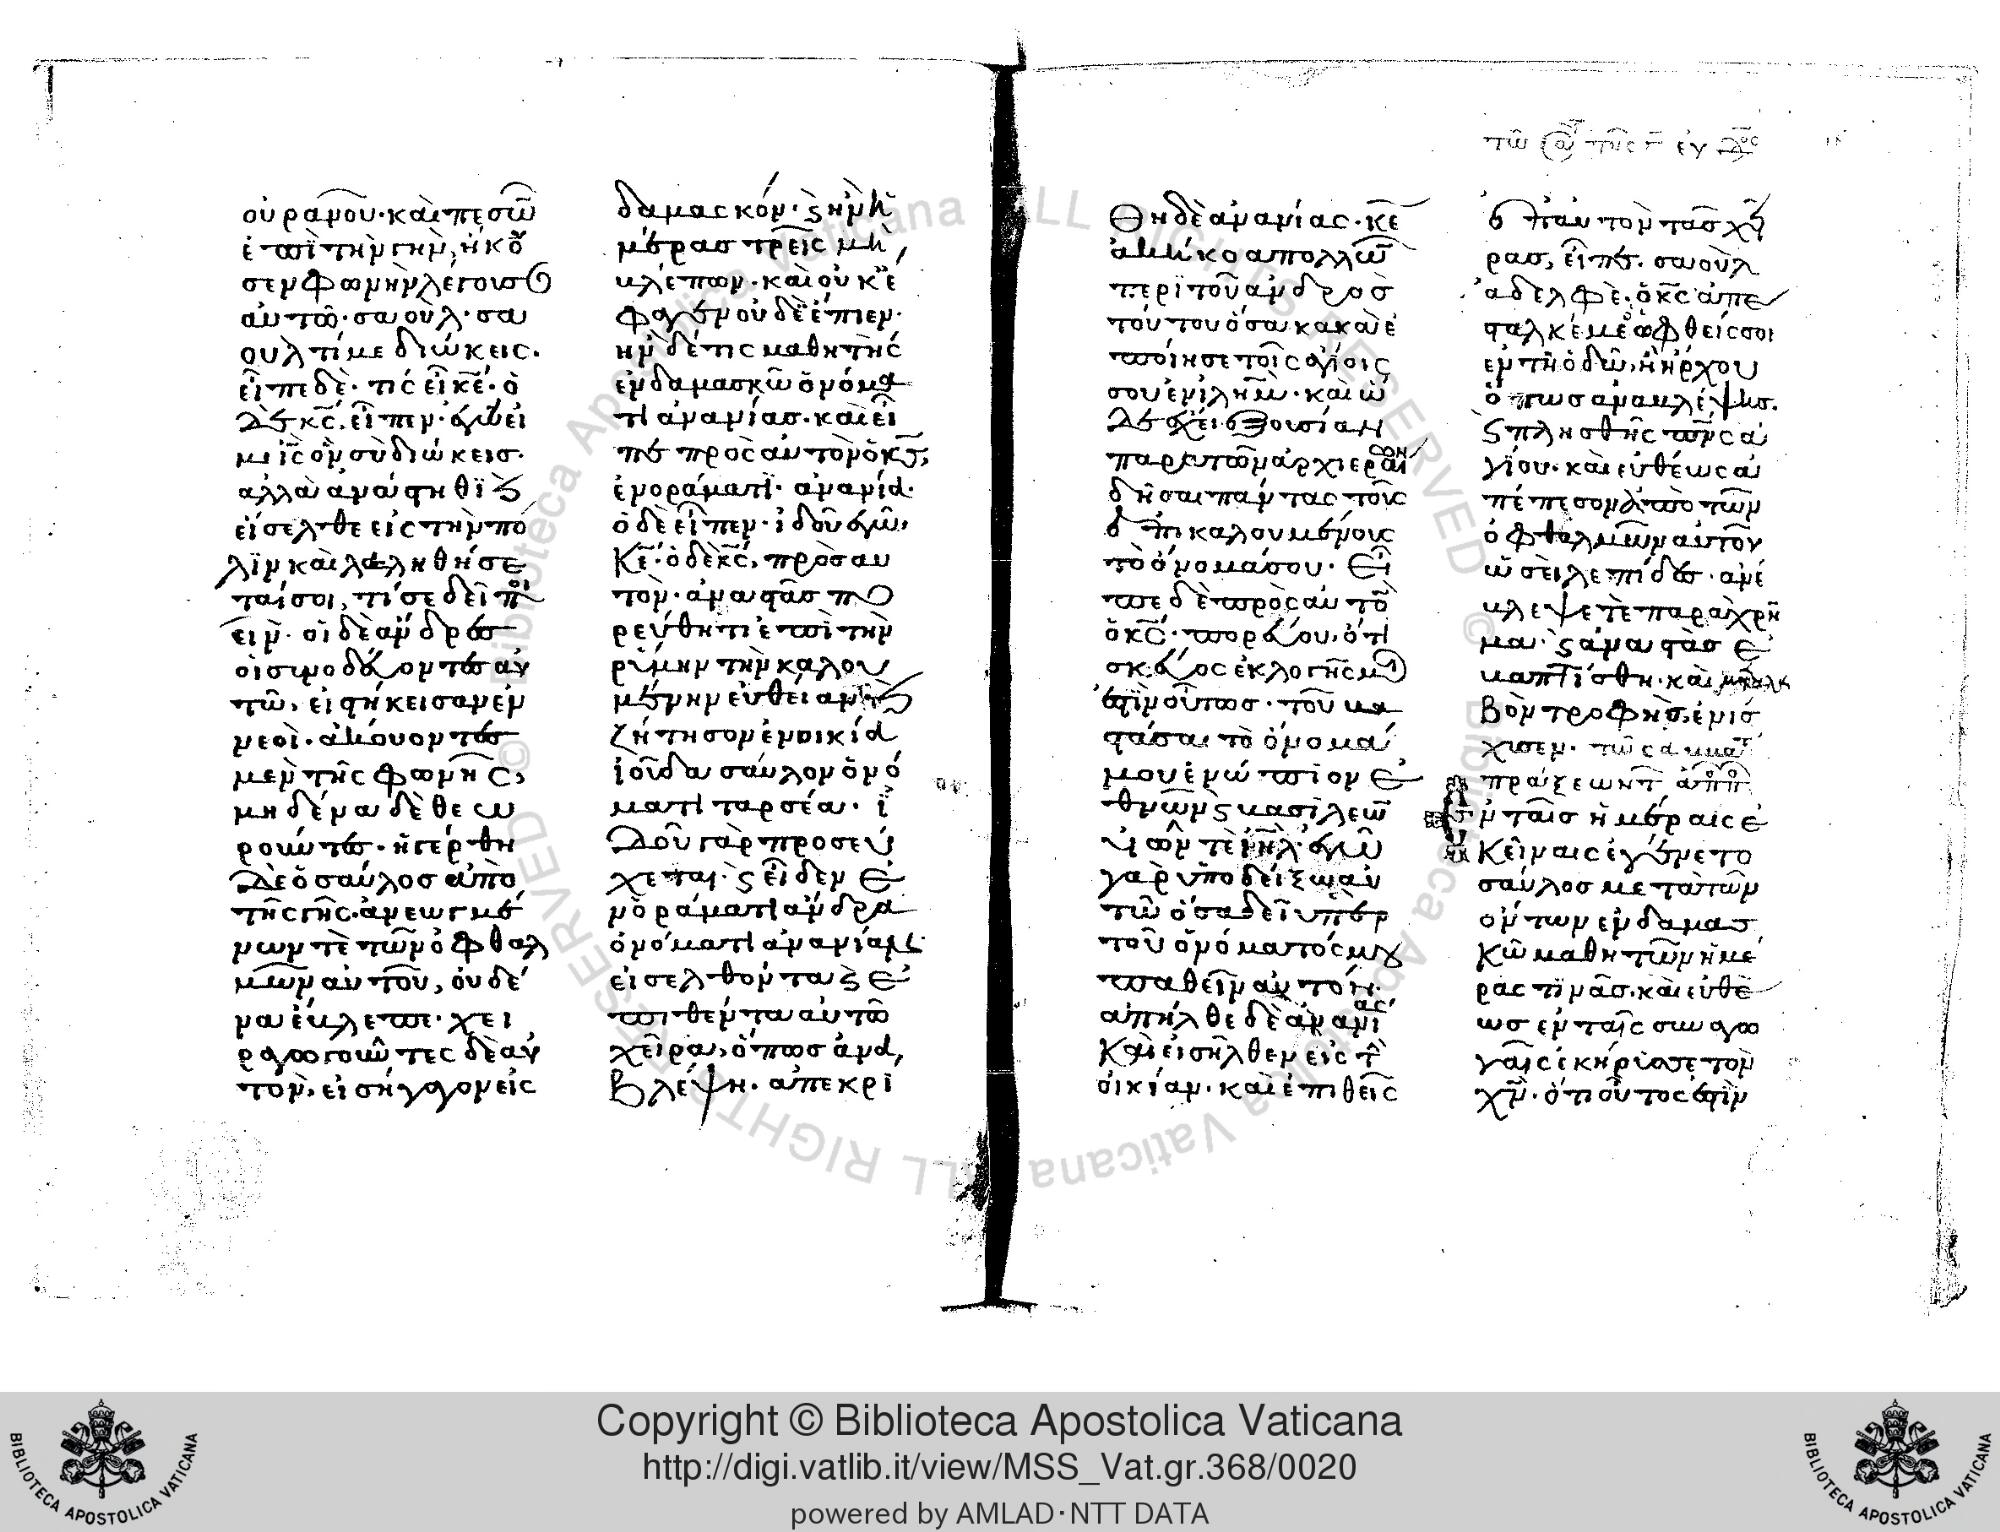 οὐρανοῦ· καὶ πεσῶ
ἐπὶ τὴν γῆν, ἤκου
σεν φωνὴν λέγουσ
αὐτῶ· σαοὺλ· σα
οὺλ τί με διώκεις·
εἶπε δὲ· τίς εἶ κε̅· ὁ
δὲ κς̅, εἶπεν· ἐγώ εἰ
μι ις̅ ὃν σὺ διώκεισ·
ἀλλὰ ἀνάστηθϊ ϗ
εἴσελθε εἰς τὴν πό
λϊν καὶ λαληθήσε
ταί σοι, τί σε δεῖ ποι
εῖν· οἱ δὲ ἄνδρες
οἱ συνοδεύοντεσ αὐ
τῶ, εἱστήκεισαν ἐν
νεοὶ· ἀκούοντεσ
μεν τῆς φωνῆς,
μηδένα δὲ θεω
ροῦντεσ· ἠγέρθη
δὲ ὁ σαῦλοσ ἀπὸ
τῆς γῆς· ἀνεωγμέ
νων τὲ τῶν ὀφθαλ
μῶν αὐτοῦ, οὐδέ
να ἔβλεπε· χει
ραγωγοῦντες δὲ αὐ
τὸν, εἰσήγαγον εἰς
δαμασκόν· ϗ ἦν ἡ
μέρασ τρεῖς μὴ
βλέπων· καὶ οὐκ ἔ
φαγεν οὐδὲ ἔπιεν·
ἦν δέ τις μαθητὴς
ἐν δαμασκῶ ὀνόμα
τι ἀνανίασ· καὶ εἶ
πε πρὸς αὐτὸν ὁ κς̅,
ἐν ὁράματϊ· ἀνανία·
ὁ δὲ εἶπεν· ἰδοὺ ἐγὼ,
Κε̅· ὁ δὲ κς̅, πρὸσ αυ
τὸν· ἀναστὰσ πο
ρεύθητι ἐπὶ τὴν
ρύμην τὴν καλου
μένην εὐθείαν ϗ
ζήτησον ἐν οικία
ἰούδα σαῦλον ὀνό
ματι ταρσέα· ϊ
δοὺ γὰρ προσεύ
χεται· ϗ εἶδεν ἐ
ν ὁράματι ἄνδρα
ὀνόματι ἀνανίαν
εἰσελθόντα ϗ ἐ
πιθέντα αὐτῶ
χεῖρα, ὅπωσ ἀνα,
Βλέψη· ἀπεκρί
τῶ σα της γ εν δος
Θη δὲ ἀνανίας· κε̅
ἀκήκοα πολλῶ
περὶ τοῦ ἀνδρὸσ
τούτου ὅσα κακὰ ἐ
ποίησε τοῖς ἁγίοις
σου ἐν ιλημ̅· καὶ ὧ
δε ἔχει ἐξουσίαν
παρὰ τῶν ἀρχιερέων
δῆσαι πάντας τοὺς
ἐπικαλουμένους
τὸ ὄνομά σου· Εἶ
πε δὲ πρὸς αὐτὸ
ὁ κς̅· πορεύου, ὅτι
σκεῦος ἐκλογῆς μοι
ἐστὶν οὗτοσ· τοῦ βα
στάσαι τὸ ὄνομά
μου ἐνώπιον ἐ
θνῶν ϗ βασιλέω
υἱῶν τὲ ιηλ̅· ἐγὼ
γὰρ ὑποδείξω αὐ
τῶ ὅσα δεῖ υπὲρ
τοῦ ὀνόματός μου
παθεῖν αὐτόν·
ἀπῆλθε δὲ ἀνανίας
Καὶ εἰσῆλθεν εἰς τὴ
οἰκίαν· καὶ ἐπιθεὶς
ἐπαυτὸν τασ χεῖ
ρας, εἶπε· σαοὺλ
ἀδελφὲ· ὁ κς̅ ἀπέ
σταλκέ με ὁ ὀφθείς σοι
ἐν τῆ ὁδῶ, ἧ ἤρχου
ὅπωσ ἀναβλέψησ·
ϗ πλησθῆς πνς̅ ἁ
γίου· καὶ εὐθέως ἀ
πέπεσον ἀπὸ τῶν
ὀφθαλμῶν αὐτοῦ
ὡσεὶ λεπίδεσ· ἀνέ
βλεψε τὲ παραχρῆ
μα· ϗ ἀναστὰσ ἐ
βαπτίσθη· καὶ
Βὸν τροφὴσ, ἐνίσ
χυσεν·
πράξεων τ̅ ἀπ
ν ταῖσ ἡμέραις ἐ
Κείναις ἐγένετο
σαῦλοσ μετὰ τῶν
ὄντων ἐν δαμασ
Κῶ μαθητῶν ἡμέ
ρας τϊνὰσ· καὶ εὐθὲ
ωσ ἐν ταῖς συναγω
γαῖς ἐκήρυσσε τὸν
χν̅· ὅτι οὗτος ἐστὶν
Copyright © Biblioteca Apostolica Vaticana
http://digi.vatlib.it/view/MSS_Vat.gr.368/0020
powered by AMLAD·NTT DATA
BIBLIOTECA APOSTOLICA VATICANA
BIBLIOTECA APOSTOLICA VATICANA